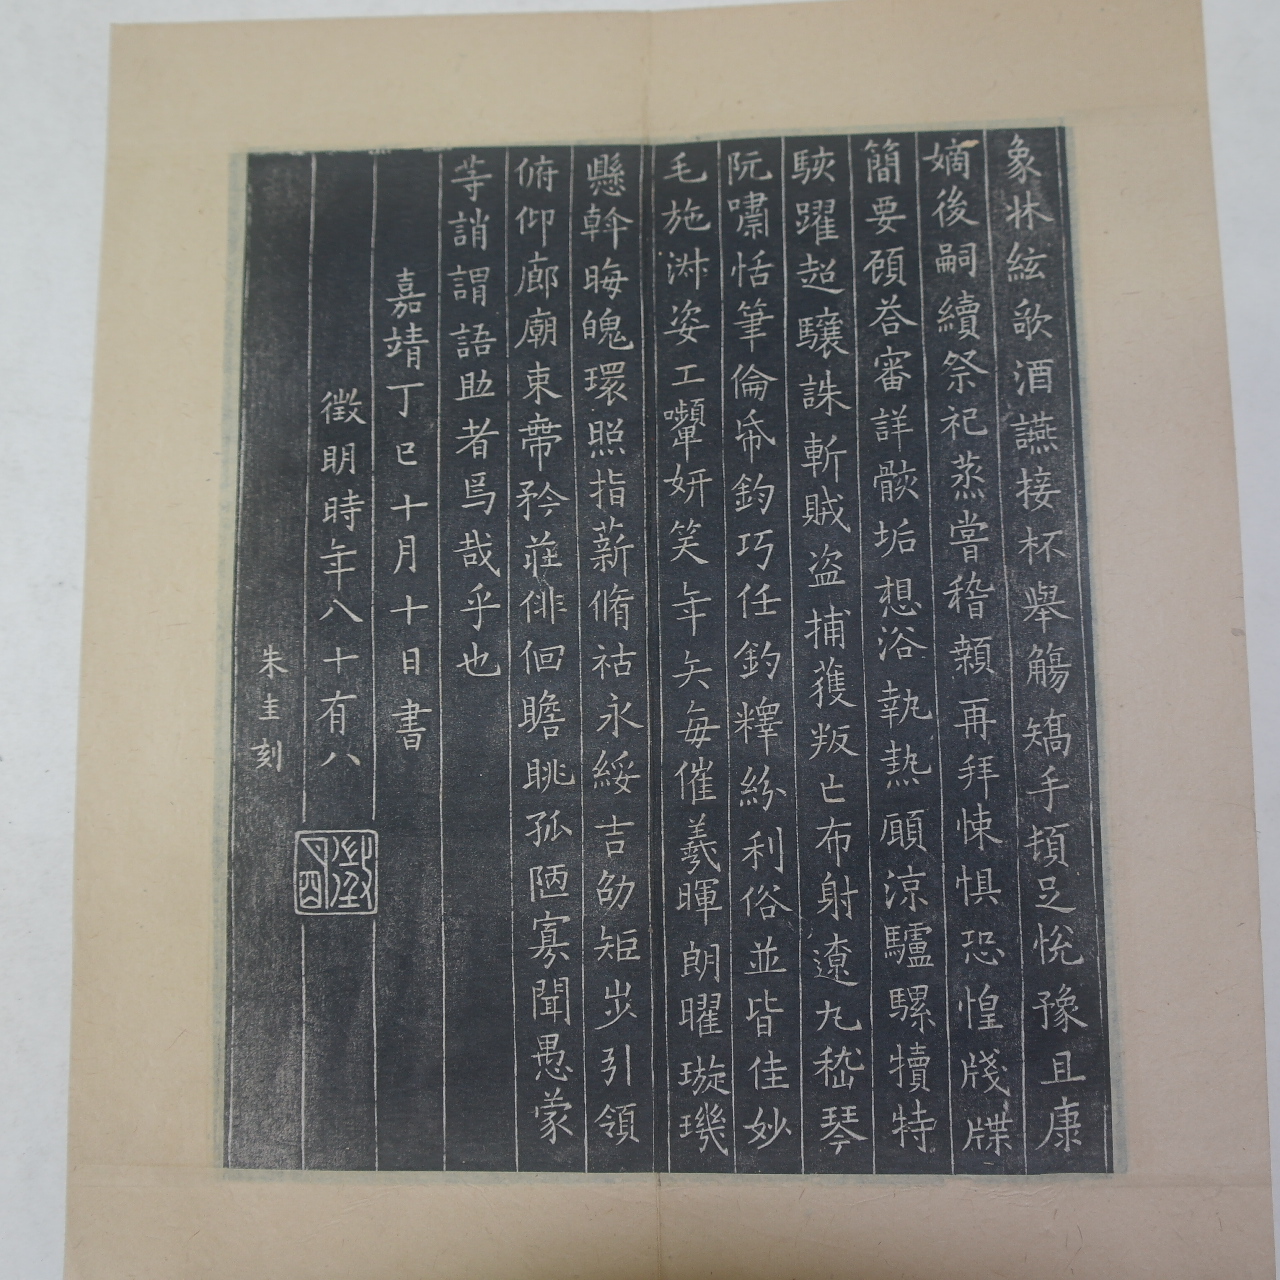 象牀絃歌酒讌接杯舉觴矯手頓足悅豫且康
嫡後嗣續祭祀蒸嘗稽顙再拜悚懼恐惶牋牒
簡要顧荅審詳骸垢想浴執熱願涼驢騾犢特
駭躍超驤誅斬賊盗捕獲叛亡布射遼丸嵇琴
阮嘯恬筆倫帋鈞巧任釣釋紛利俗並皆佳妙
毛施淑姿工顰妍笑年矢每催羲暉朗曜璇璣
懸斡晦魄環照指薪脩祜永綏吉劭矩步引領
俯仰廊廟束帶矜莊俳佪瞻眺孤陋寡聞愚蒙
等誚謂語助者焉哉乎也
嘉靖丁巳十月十日書
徵明時年八十有八
朱圭刻